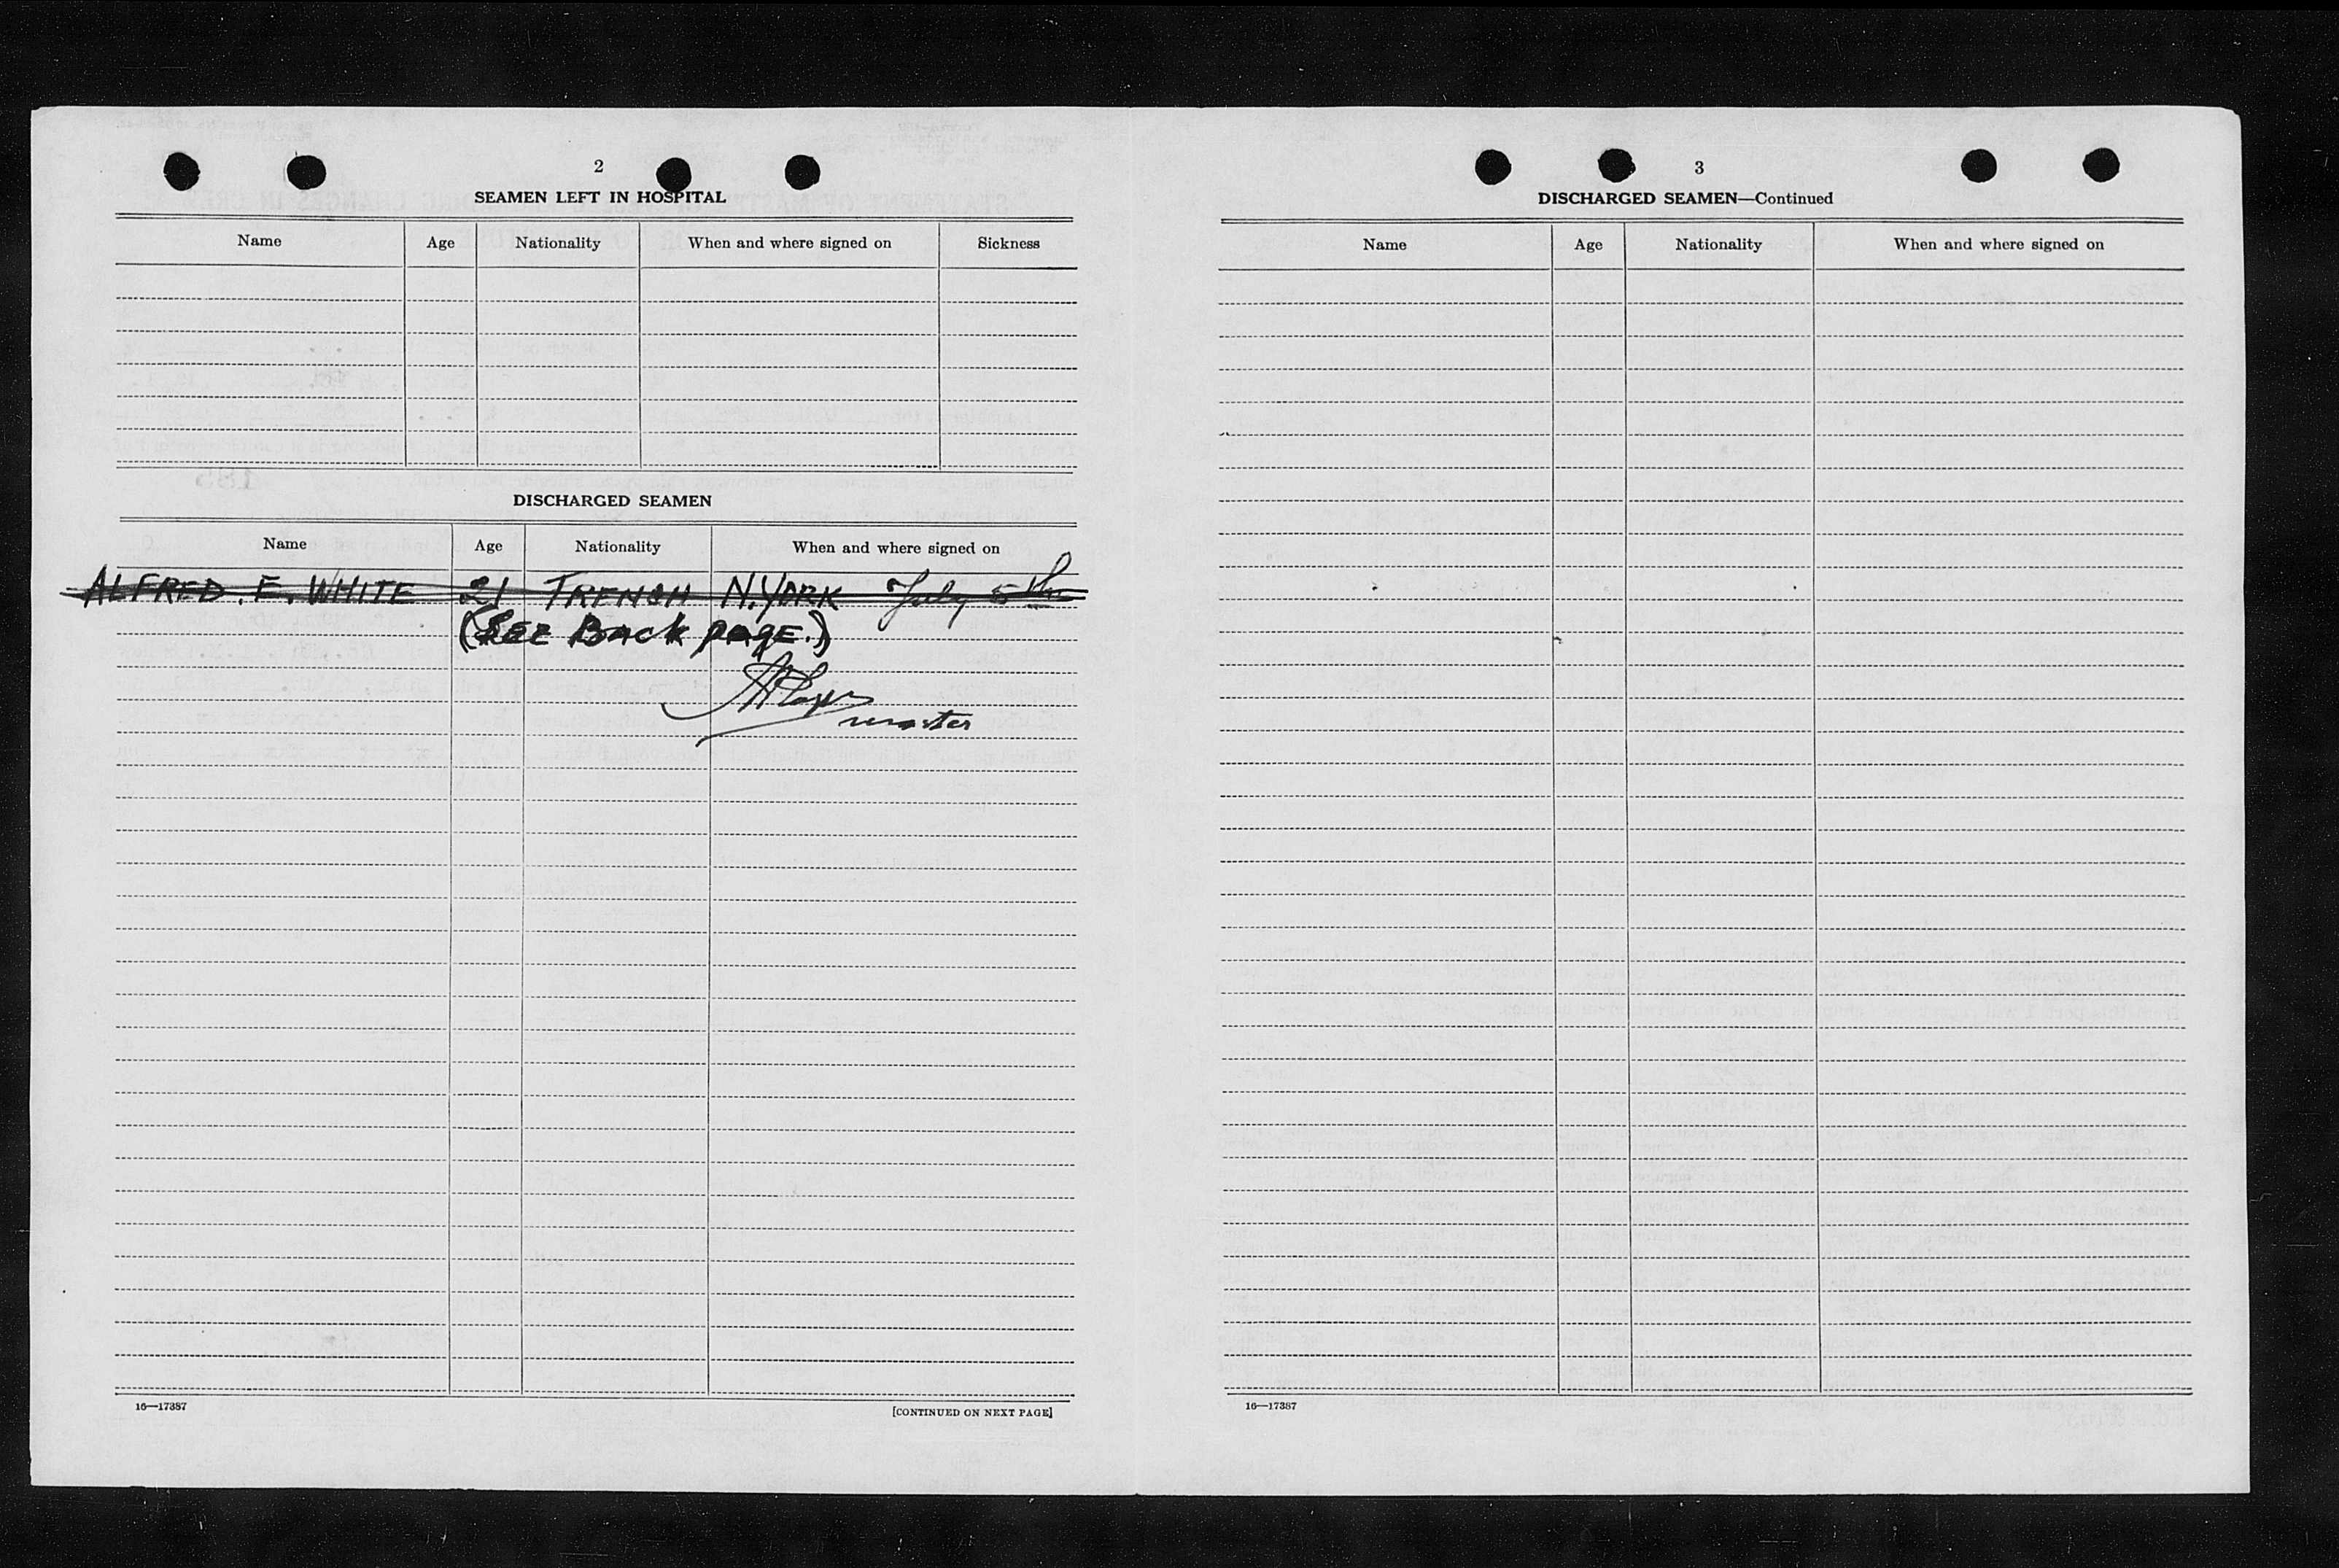 2
SEAMEN LEFT IN HOSPITAL
Name Age Nationality When and where signed on Sickness
DISCHARGED SEAMEN
Name Age Nationality When and where signed on
ALFRED. E. WHITE 21 FRENCH N.YORK July 5th
(SEE BACK PAGE.)
master
16—17387 [CONTINUED ON NEXT PAGE]
3
DISCHARGED SEAMEN—Continued
Name Age Nationality When and where signed on
16—17387